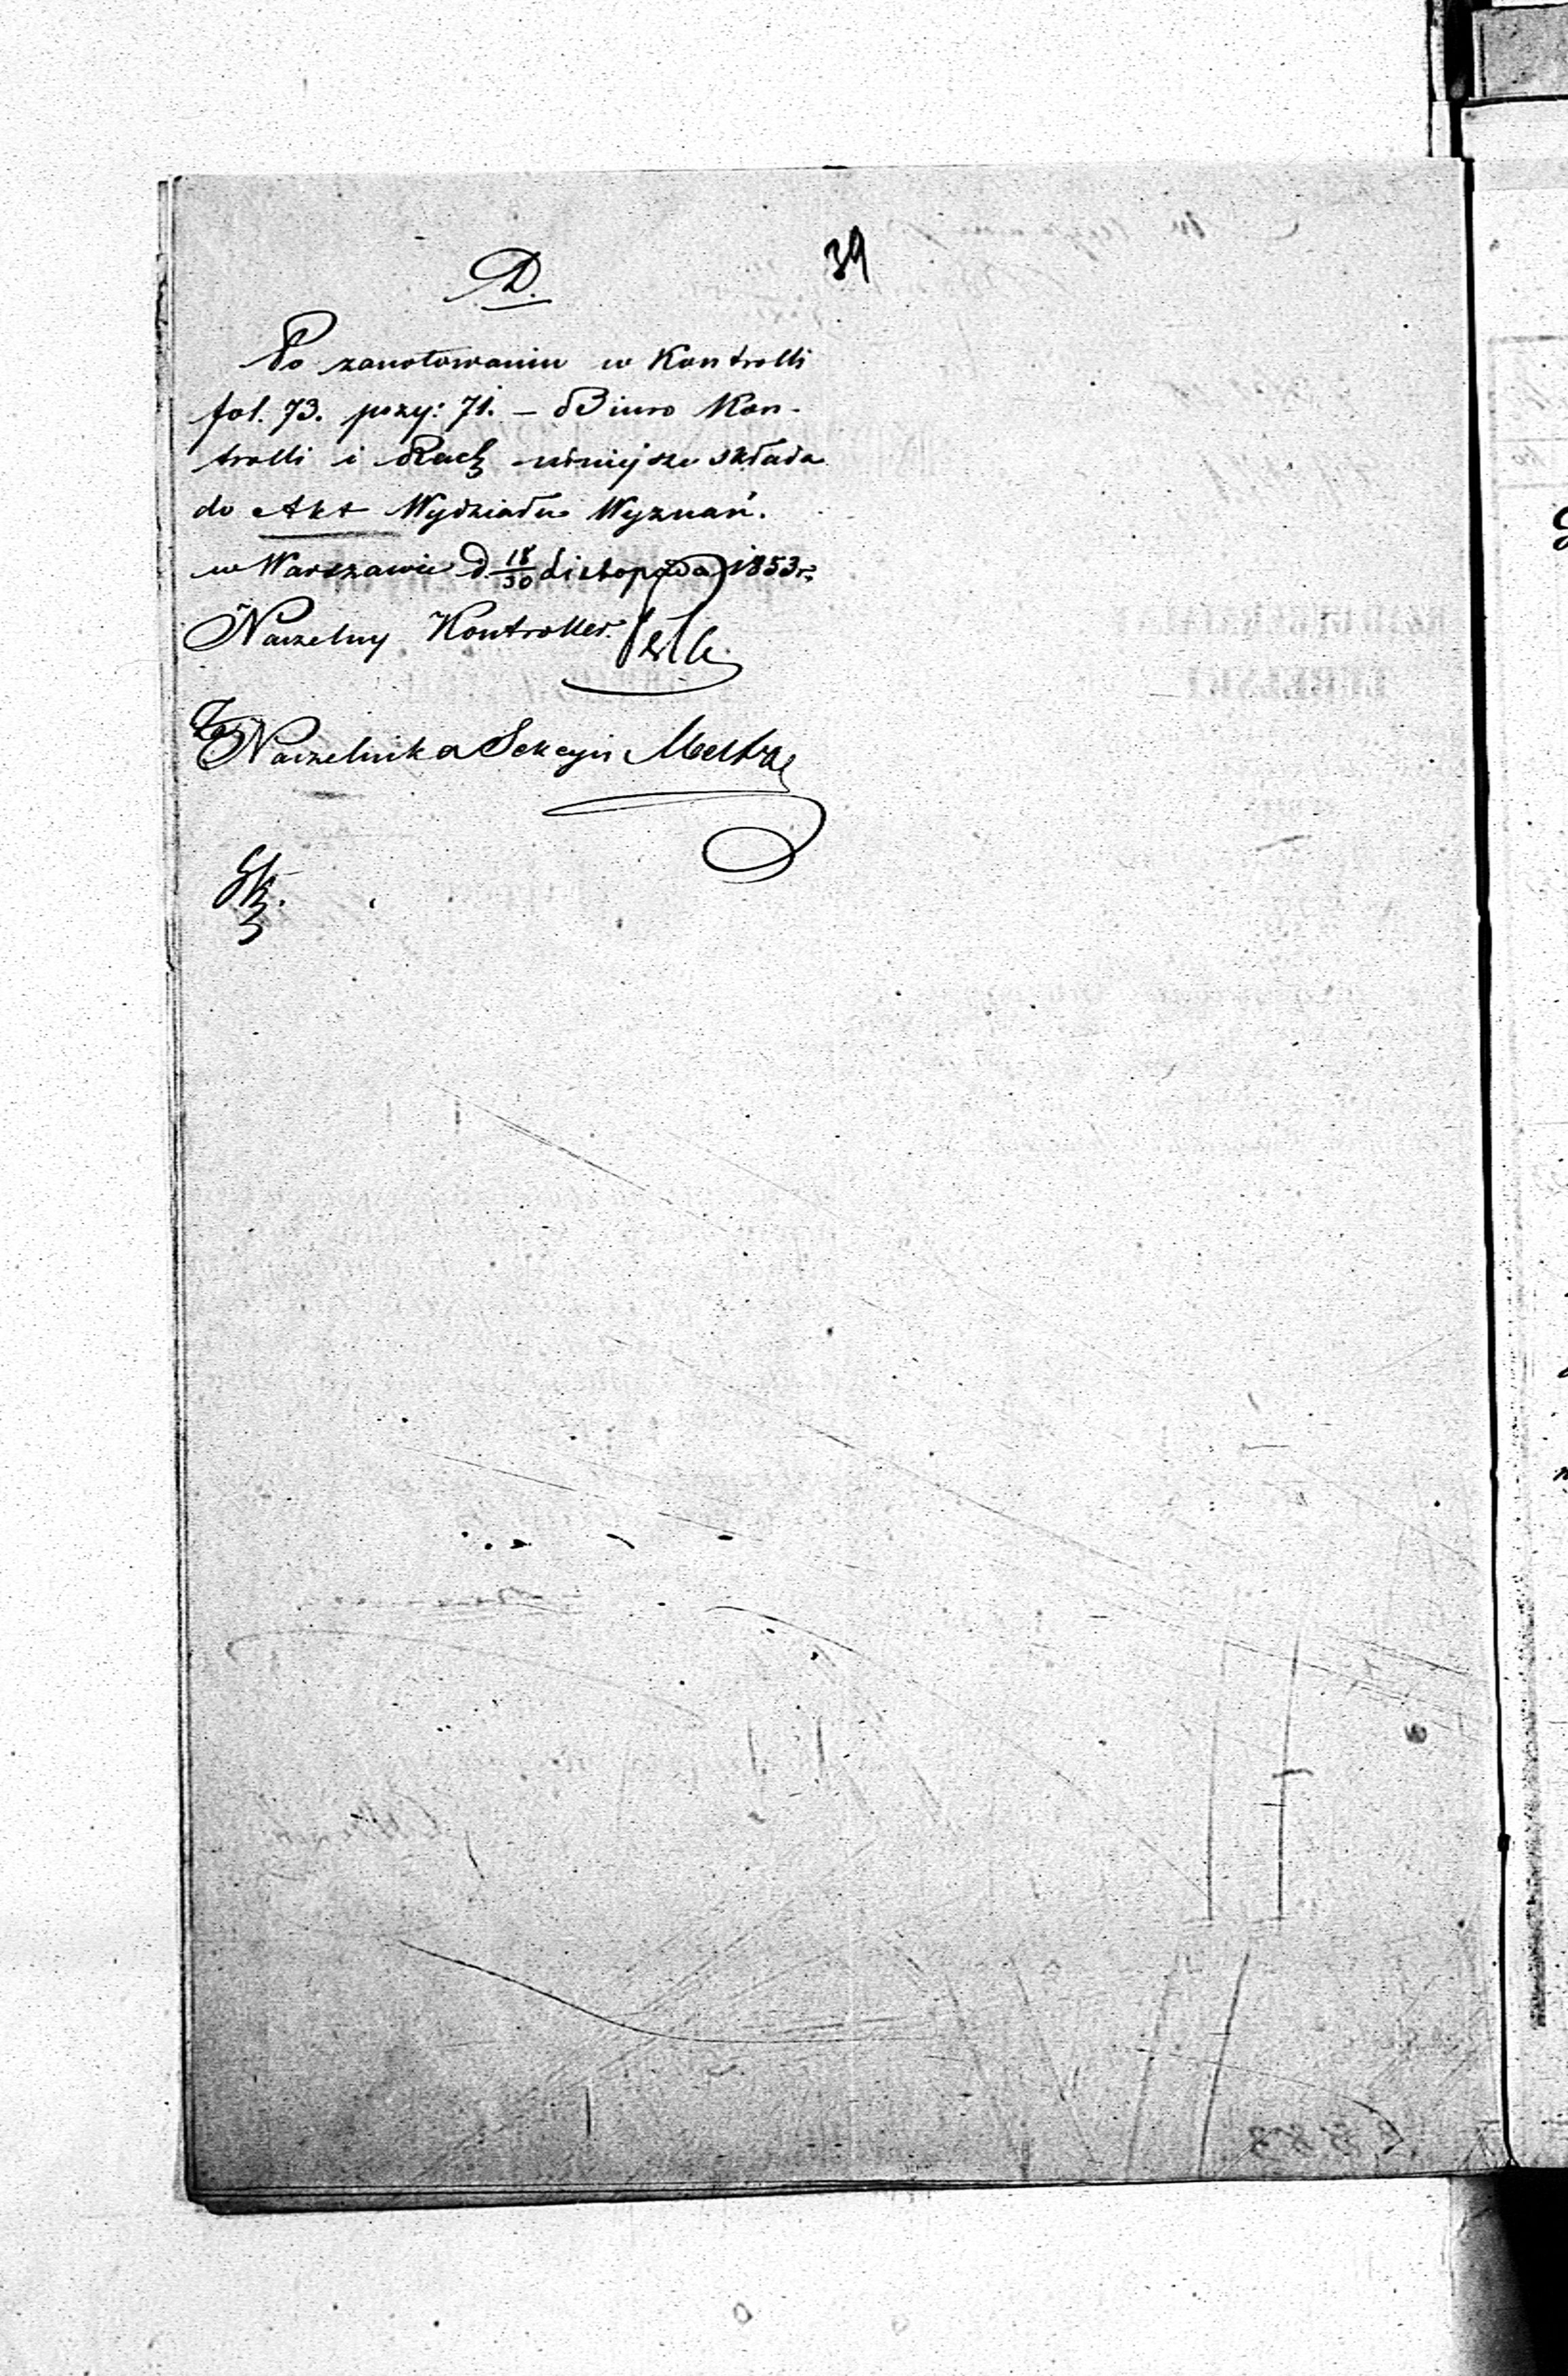 39
D.
Po zanotowaniu w Kontrolli
fol. 73. pozy: 71. – Biuro Kon-
trolli i Rach niniejsze składa
do Akt Wydziału Wyznań.
w Warszawie d. 18/30 Listopada 1853 r.
Naczelny Kontroller
Za Naczelnika Sekcyi